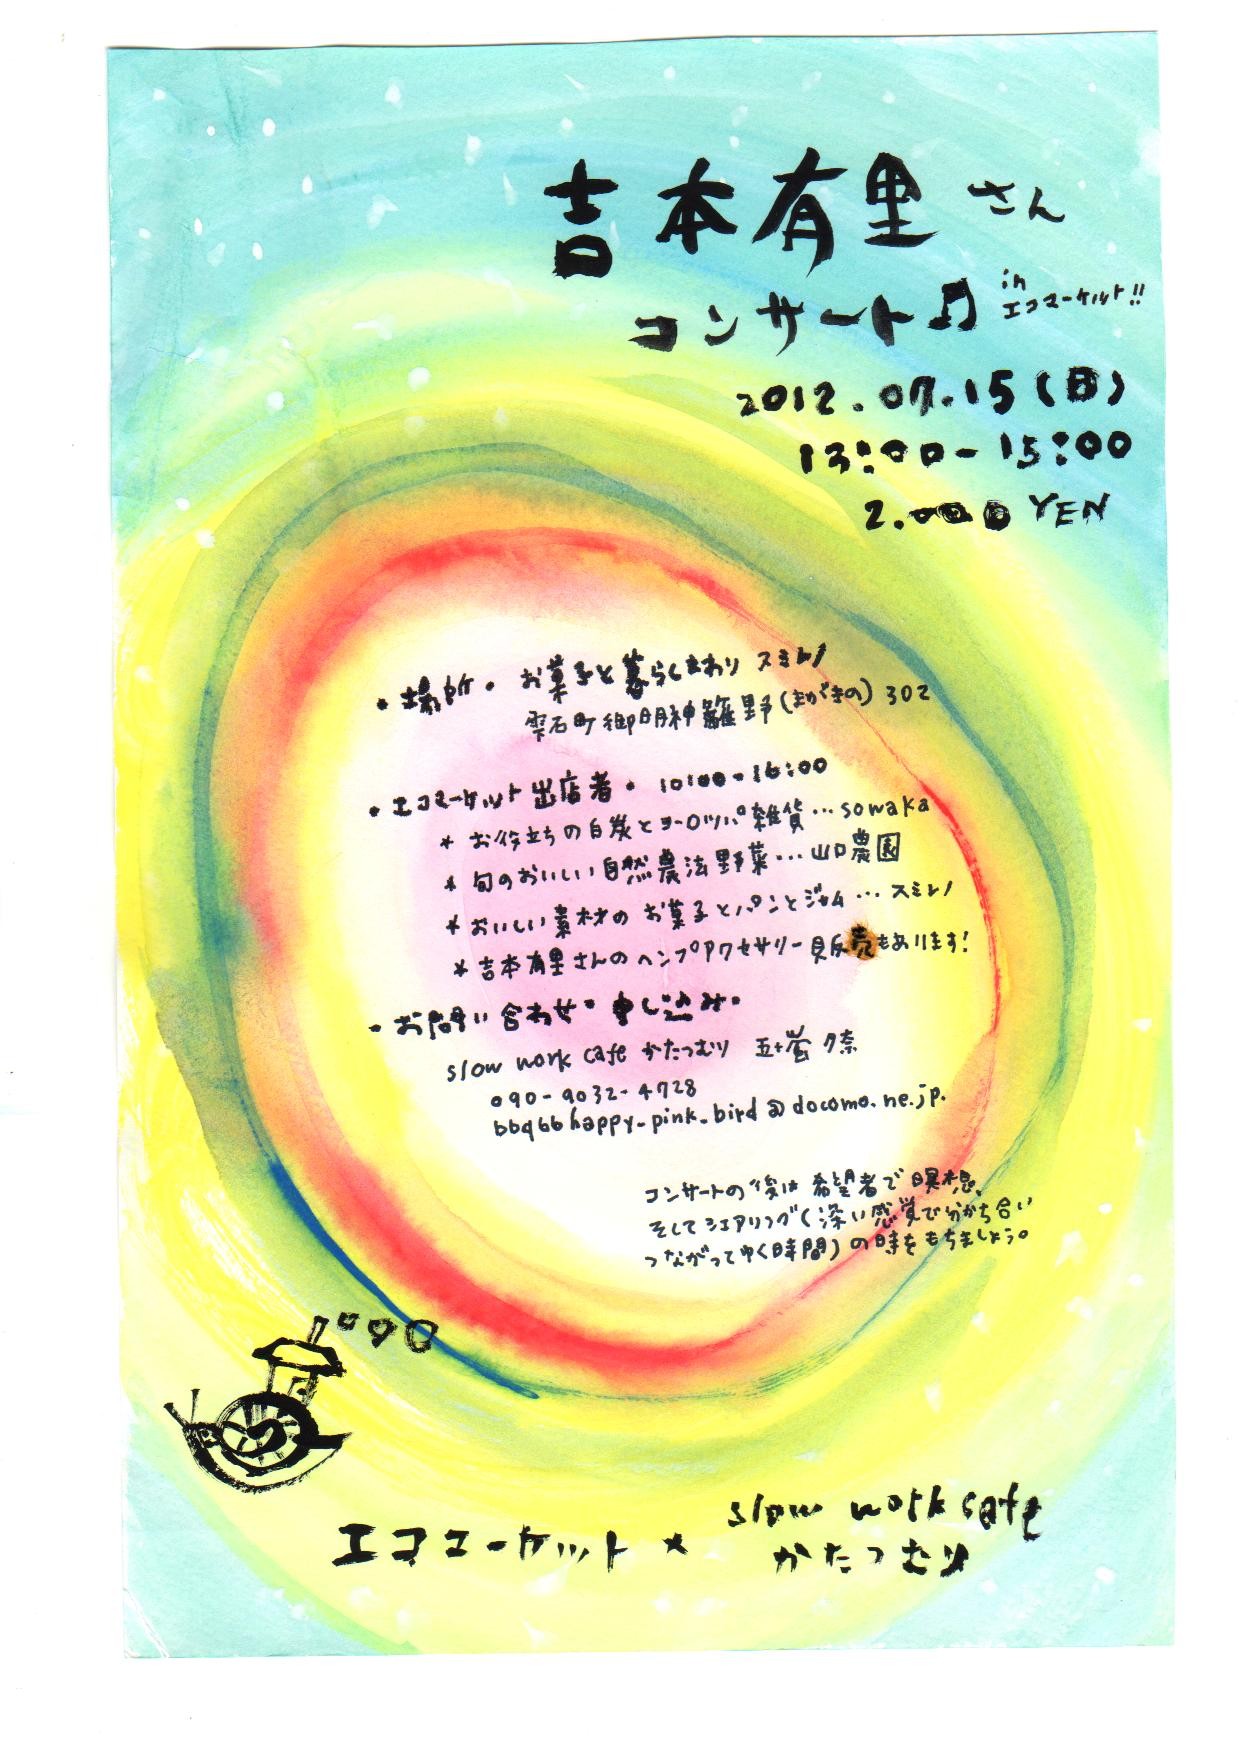 吉本有里さん
コンサート♫ in エコマーケット!!
2012.07.15(日)
13:00-15:00
2.000 YEN
・場所・ お菓子と暮らしまわり スミレノ
雫石町御明神籬野(まがきの)302
・エコマーケット出店者・ 10:00-16:00
* お役立ちの白炭とヨーロッパ雑貨…sowaka
* 旬のおいしい自然農法野菜…山口農園
* おいしい素材の お菓子とパンとジャム…スミレノ
* 吉本有里さんのヘンプアクセサリー販売もあります!
・お問い合わせ・申し込み・
slow work cafe かたつむり 五十嵐 夕奈
090-9032-4728
bbq66happy_pink_bird@docomo.ne.jp.
コンサートの後は 希望者で瞑想、
そしてシェアリング(深い感覚で分かち合い
つながってゆく時間)の時をもちましょう。
エコマーケット × slow work cafe
かたつむり